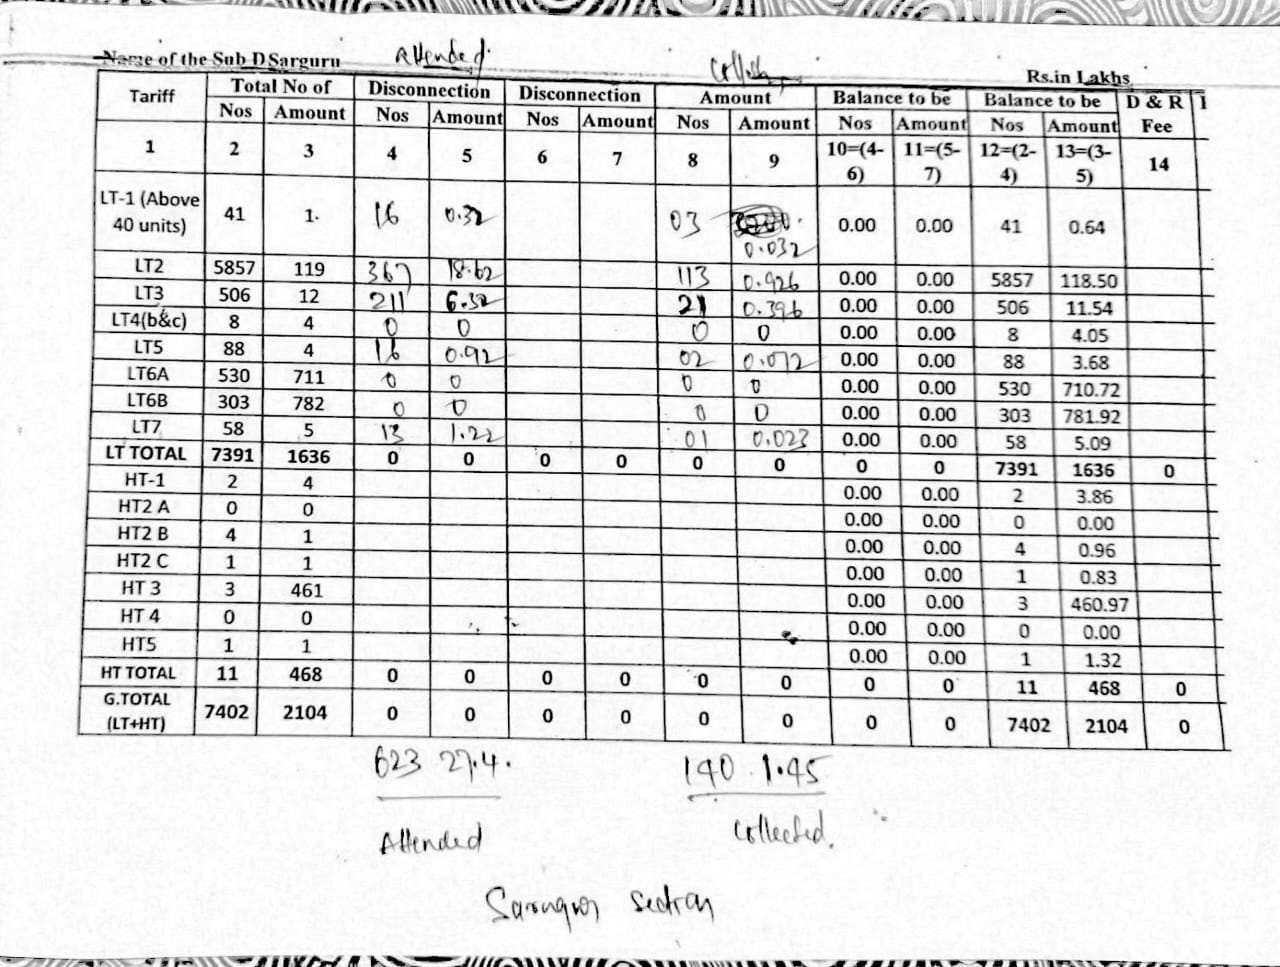 Name of the Sub D Sarguru Attended Rs.in Lakhs
Tariff Total No of Disconnection Disconnection Amount Balance to be Balance to be D & R
Nos Amount Nos Amount Nos Amount Nos Amount Nos Amount Nos Amount Fee
1 2 3 4 5 6 7 8 9 10=(4-6) 11=(5-7) 12=(2-4) 13=(3-5) 14
LT-1 (Above 40 units) 41 1. 16 0.32 03 0.032 0.00 0.00 41 0.64
LT2 5857 119 367 18.62 113 0.926 0.00 0.00 5857 118.50
LT3 506 12 211 6.32 21 0.396 0.00 0.00 506 11.54
LT4(b&c) 8 4 0 0 0 0 0.00 0.00 8 4.05
LT5 88 4 16 0.92 02 0.072 0.00 0.00 88 3.68
LT6A 530 711 0 0 0 0 0.00 0.00 530 710.72
LT6B 303 782 0 0 0 0 0.00 0.00 303 781.92
LT7 58 5 13 1.22 01 0.023 0.00 0.00 58 5.09
LT TOTAL 7391 1636 0 0 0 0 0 0 0 0 7391 1636 0
HT-1 2 4 0.00 0.00 2 3.86
HT2 A 0 0 0.00 0.00 0 0.00
HT2 B 4 1 0.00 0.00 4 0.96
HT2 C 1 1 0.00 0.00 1 0.83
HT 3 3 461 0.00 0.00 3 460.97
HT 4 0 0 0.00 0.00 0 0.00
HT5 1 1 0.00 0.00 1 1.32
HT TOTAL 11 468 0 0 0 0 0 0 0 0 11 468 0
G.TOTAL (LT+HT) 7402 2104 0 0 0 0 0 0 0 0 7402 2104 0
623 27.4. 140 1.45
Attended Collected.